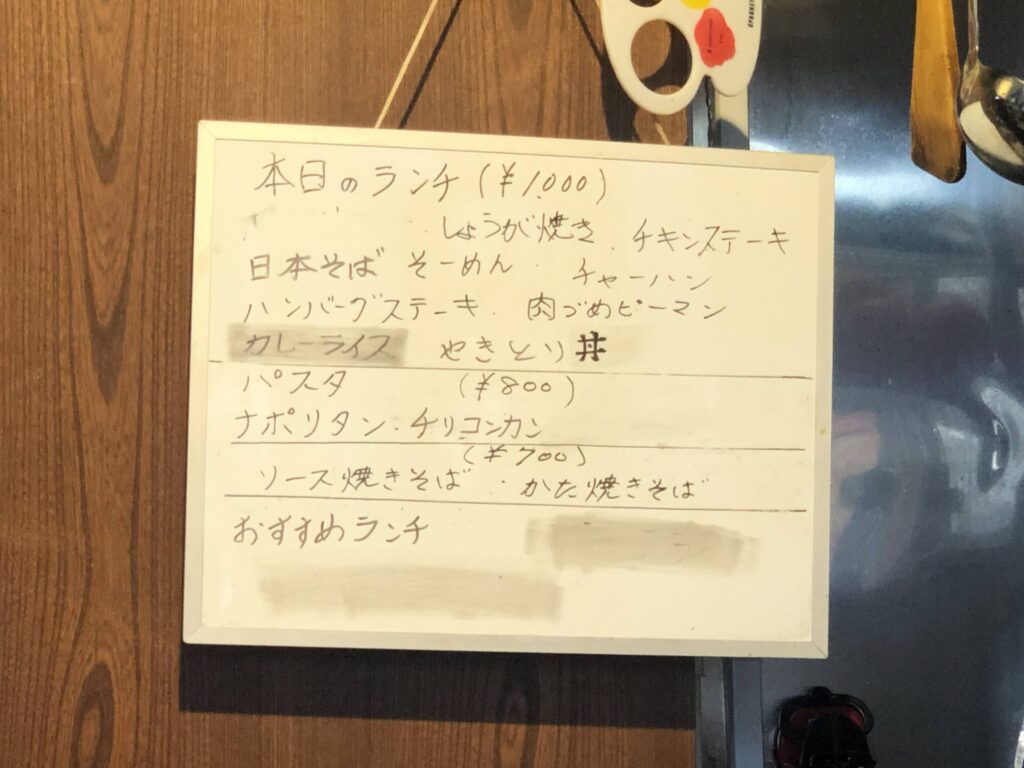 本日のランチ(¥1.000)
しょうが焼き.チキンステーキ
日本そば そーめん・チャーハン
ハンバーグステーキ.肉づめピーマン
カレーライス やきとり丼
パスタ (¥800)
ナポリタン・チリコンカン
(¥700)
ソース焼きそば・かた焼きそば
おすすめランチ